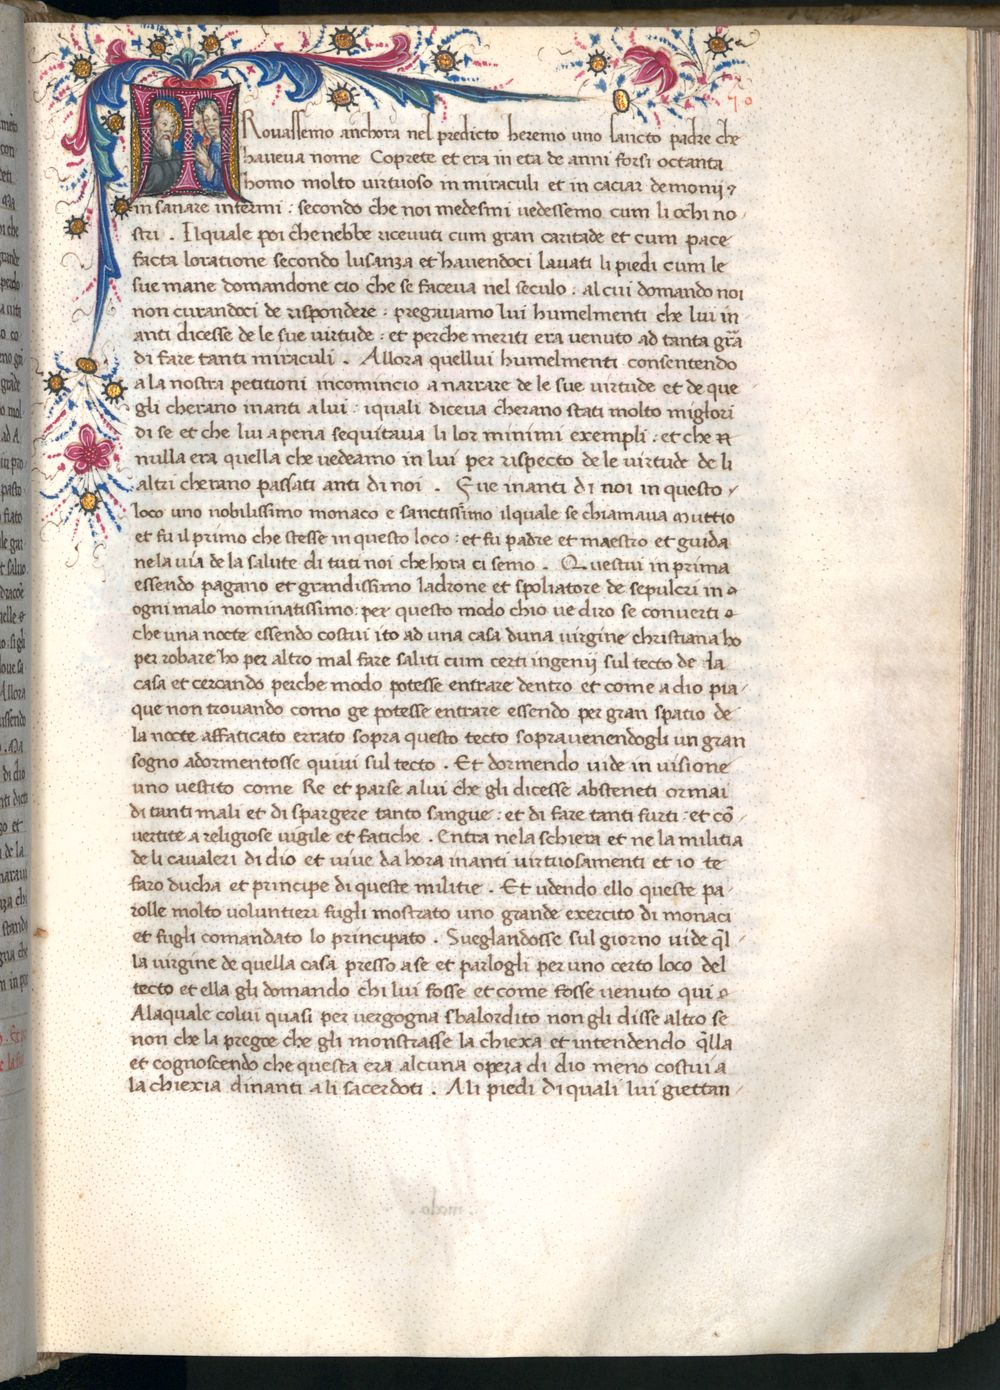 70
TRovassemo anchora nel predicto heremo uno sancto padre che
haveva nome Coprete et era in eta de anni forsi octanta
homo molto virtuoso in miraculi et in caciar demonij
in sanare infermi : secondo che noi medesmi vedessemo cum li ochi no
stri . Ilquale poi che nebbe ricevuti cum gran caritade et cum pace
facta loratione secondo lusanza et havendoci lavati li piedi cum le
sue mane domandone cio che se faceva nel seculo : al cui domando noi
non curandoci de rispondere : pregavamo lui humelmenti che lui in
anti dicesse de le sue virtude : et perche meriti era venuto ad tanta gra
di fare tanti miraculi . Allora quellui humelmenti consentendo
a la nostra petitioni incomincio a narrare de le sue virtude et de que
gli cherano inanti a lui : iquali diceva cherano stati molto migliori
di se et che lui apena sequitava li lor minimi exempli : et che
nulla era quella che vedeamo in lui per rispecto de le virtude de li
altri cherano passati anti di noi . Fue inanti di noi in questo
loco uno nobilissimo monaco e sanctissimo ilquale se chiamava Muttio
et fu il primo che stesse in questo loco : et fu padre et maestro et guida
ne la via de la salute di tuti noi che hora ci semo . Questui in prima
essendo pagano et grandissimo ladrone et spoliatore de sepulcri in
ogni malo nominatissimo : per questo modo chio ve diro se converti
che una nocte essendo costui ito ad una casa duna virgine christiana ho
per robare ho per altro mal fare saliti cum certi ingenij sul tecto de la
casa et cercando perche modo potesse entrare dentro et come a dio pia
que non trovando como ge potesse entrare essendo per gran spatio de
la nocte affaticato errato sopra questo tecto sopravenendogli un gran
sogno adormentosse quivi sul tecto . Et dormendo vide in visione
uno vestito come Re et parse a lui che gli dicesse absteneti ormai
di tanti mali et di spargere tanto sangue : et di fare tanti furti : et cō
vertite a religiose vigile et fatiche . Entra ne la schiera et ne la militia
de li cavaleri di dio et vive da hora inanti virtuosamenti et io te
faro ducha et principe di queste militie . Et udendo ello queste pa
rolle molto voluntieri fugli mostrato uno grande exercito di monaci
et fugli comandato lo principato . Sveglandosse sul giorno vide q̄l
la virgine de quella casa presso a se et parlogli per uno certo loco del
tecto et ella gli domando chi lui fosse et come fosse venuto qui
Alaquale colui quasi per vergogna sbalordito non gli disse altro se
non che la pregoe che gli monstrasse la chiexa et intendendo q̄lla
et cognoscendo che questa era alcuna opera di dio meno costui a
la chiexia dinanti a li sacerdoti . Ali piedi di quali lui giettan